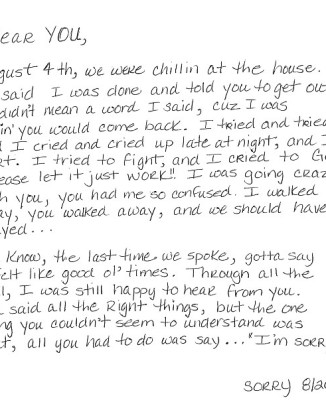 ear YOU,
gust 4th, we were chillin at the house.
said I was done and told you to get out
didn't mean a word I said, cuz I was
in' you would come back. I tried and tried
d I cried and cried up late at night, and I
rt. I tried to fight, and I cried to Go
ease let it just work!! I was going craz
h you, you had me so confused. I walked
ay, you walked away, and we should have
yed...
know, the last time we spoke, gotta say
elt like good ol' times. Through all the
l, I was still happy to hear from you.
said all the Right things, but the one
ng you couldn't seem to understand was
t, all you had to do was say..."I'm SORR
SORRY 8/20